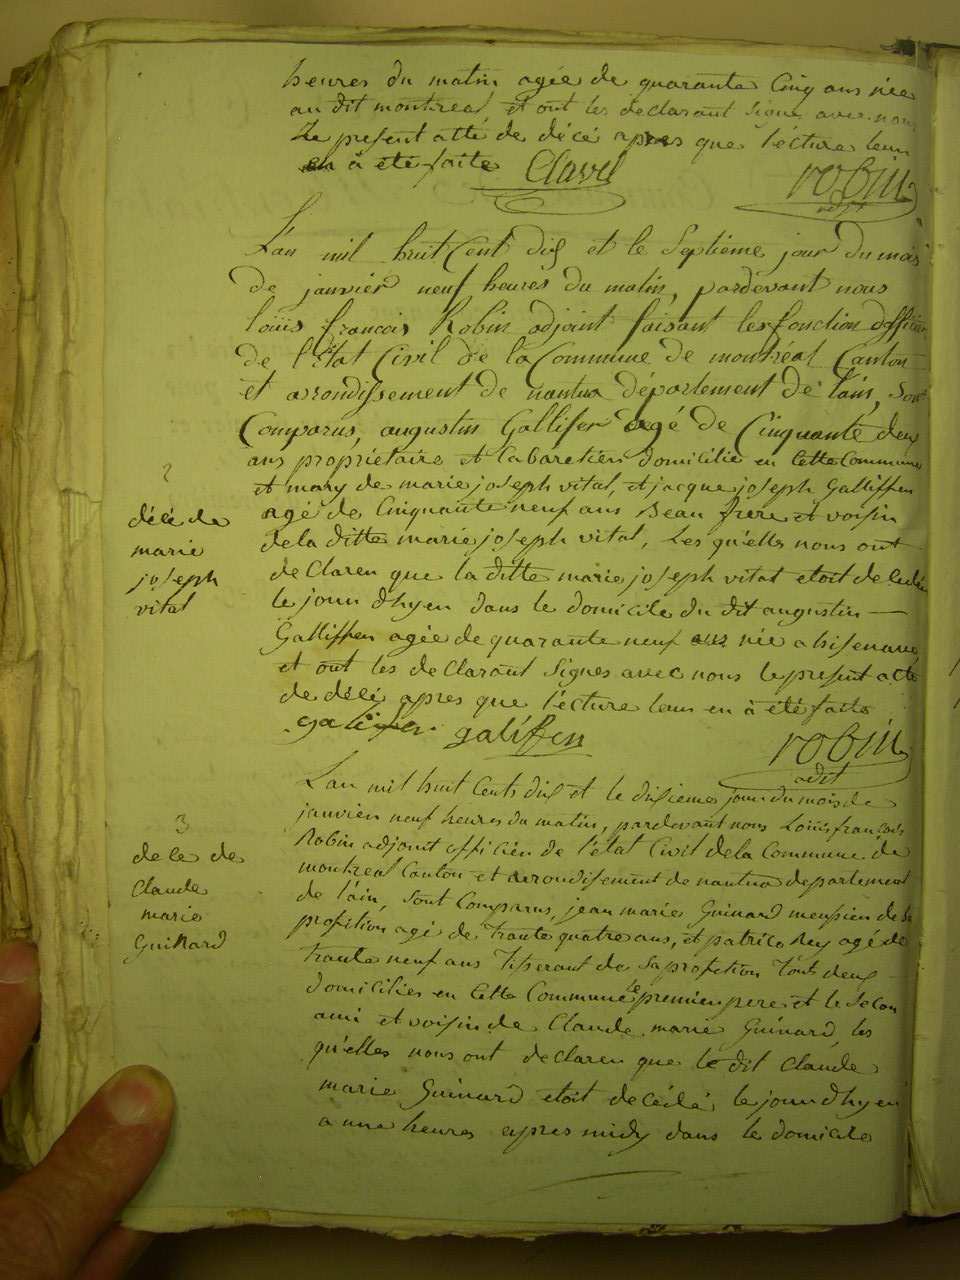 heures du matin agée de quarante Cinq ans née
au dit montreal, et ont les declarant signe avec nous
Le present atte de décé apres que lécture leur
en à eté faite Clavel robin
adjt
L'an mil huit Cent dix et le Septieme jour du mois
de janvier neuf heures du matin, pardevant nous
loüis françois Robin adjoint faisant les fonction dofficier
de l'Etat Civil de la Commune de montréal Canton
et arrondissement de nantua département de l'ain, Sont
Comparus, augustin Gallifer agé de Cinquante deux
ans proprietaire et Cabaretier domicilié en Cette Commune
et mary de marie joseph vital, et jacque joseph Galliffer
agé de Cinquante neuf ans Beau frere et voisin
de la ditte marie joseph vital, Les qu'elle nous ont
de Claren que la ditte marie joseph vital etoit decedée
le jour d'hyer dans le domicile du dit augustin
Galliffer agée de quarante neuf ans née a
et ont les declarant signes avec nous le present acte
de décé apres que lécture leur en à eté faite
2
décé de
marie
joseph
vital
galifer galiffer robin
adjt
L'an mil huit Cents dix et le dixieme jour du mois de
janvier neuf heures du matin, pardevant nous Loüis françois
Robin adjoint officier de l'état Civil de la Commune de
montreal Canton et arrondissement de nantua departement
de l'ain, Sont Comparus, jean marie Guinard de Sa
profition agé de trante quatre ans, et patrice Rey agé de
trante neuf ans Tisserant de Sa profetion Tout deux
domiciliés en Cette Commune le premier pere et le Secon
ami et voisin de Claude marie Guinard, les
qu'elles nous ont declaren que le dit Claude
marie Guinard etoit decédé le jour d'hyer
a une heures apres midy dans le domicile
3
de ce de
Claude
marie
Guinard